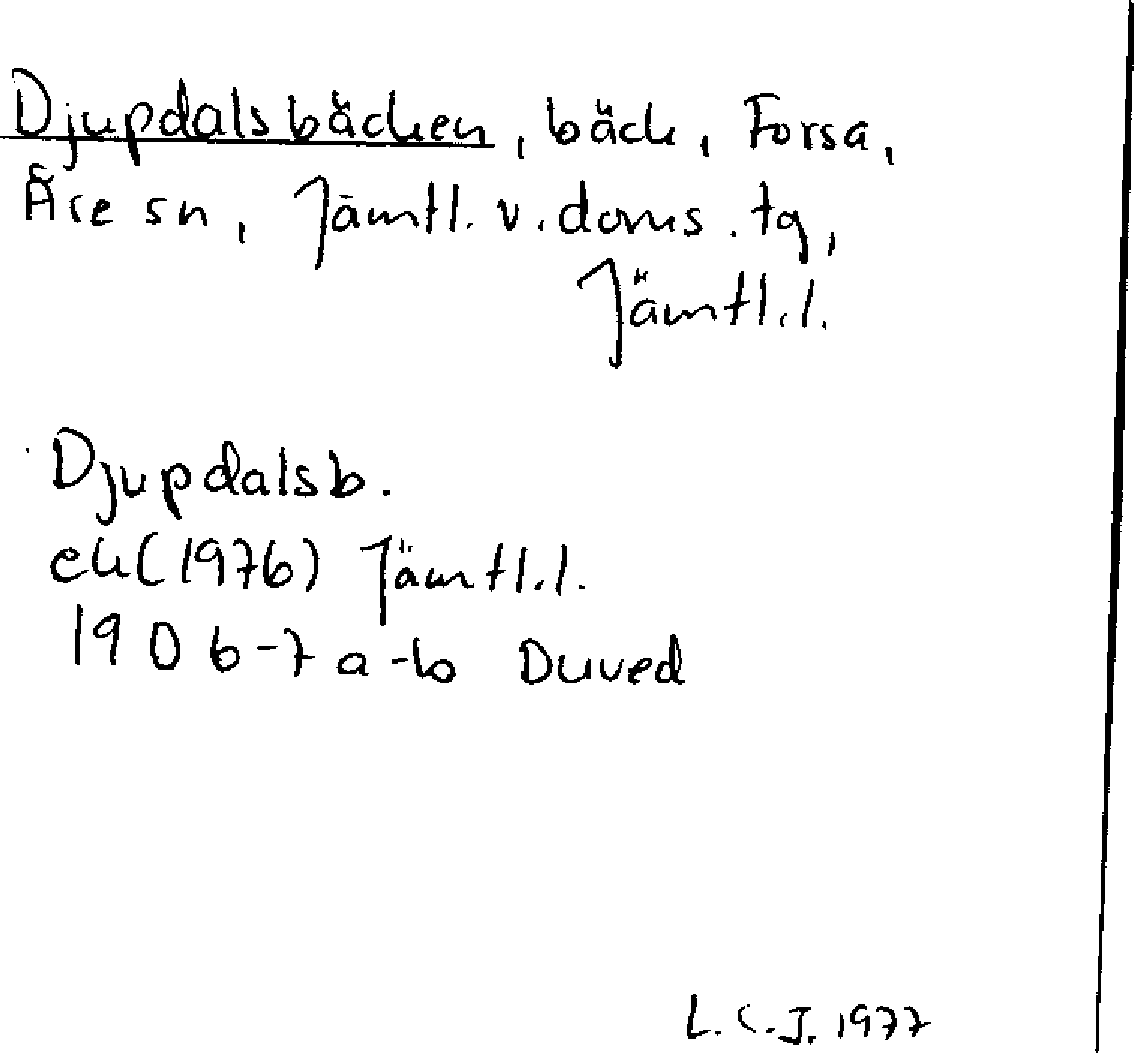 Djupdalsbäcken, bäck, Forsa,
Åre sn, Jämtl. v. doms. tg,
Jämtl.l.
Djupdalsb.
ek(1976) Jämtl.l.
19 D 6-7 a-b Duved
L.C.J. 1977